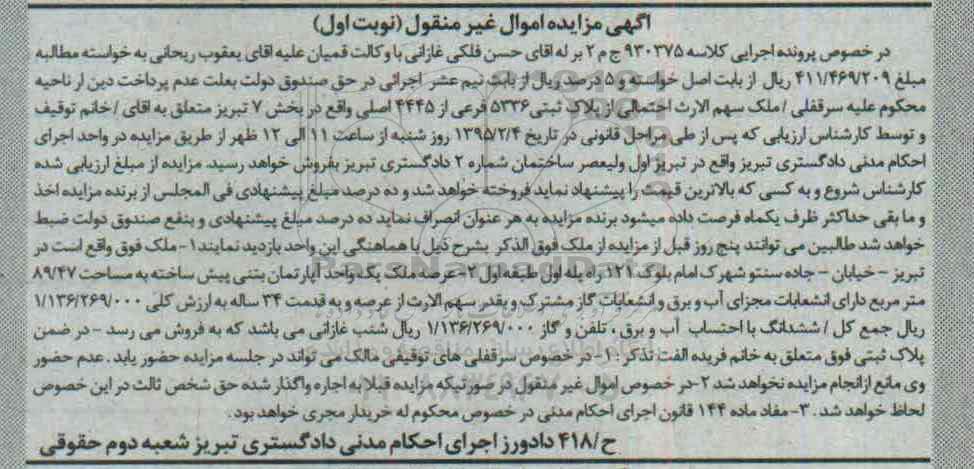 آگهی مزایده اموال غیر منقول (نوبت اول)
در خصوص پرونده اجرایی کلاسه ۹۳۰۳۷۵ ج م ۲ بر له اقای حسن فلکی غازانی با وکالت قمیان علیه اقای یعقوب ریحانی به خواسته مطالبه
مبلغ ۴۱۱/۴۶۹/۲۰۹ ریال از بابت اصل خواسته و ۵ درصد ریال از بابت نیم عشر اجرائی در حق صندوق دولت بعلت عدم پرداخت دین از ناحیه
محکوم علیه سرقفلی / ملک سهم الارث احتمالی از پلاک ثبتی ۵۳۳۶ فرعی از ۴۴۴۵ اصلی واقع در بخش ۷ تبریز متعلق به اقای / خانم توقیف
و توسط کارشناس ارزیابی که پس از طی مراحل قانونی در تاریخ ۱۳۹۵/۲/۴ روز شنبه از ساعت ۱۱ الی ۱۲ ظهر از طریق مزایده در واحد اجرای
احکام مدنی دادگستری تبریز واقع در تبریز اول ولیعصر ساختمان شماره ۲ دادگستری تبریز بفروش خواهد رسید. مزایده از مبلغ ارزیابی شده
کارشناس شروع و به کسی که بالاترین قیمت را پیشنهاد نماید فروخته خواهد شد و ده درصد مبلغ پیشنهادی فی المجلس از برنده مزایده اخذ
و ما بقی حداکثر ظرف یکماه فرصت داده میشود برنده مزایده به هر عنوان انصراف نماید ده درصد مبلغ پیشنهادی و بنفع صندوق دولت ضبط
خواهد شد طالبین می توانند پنج روز قبل از مزایده از ملک فوق الذکر بشرح ذیل با هماهنگی این واحد بازدید نمایند ۱- ملک فوق واقع است در
تبریز – خیابان – جاده سنتو شهرک امام بلوک ۱۲۱ راه پله اول طبقه اول ۲- عرصه ملک یک واحد آپارتمان بتنی پیش ساخته به مساحت ۸۹/۴۷
متر مربع دارای انشعابات مجزای آب و برق و انشعابات گاز مشترک و بقدر سهم الارث از عرصه و به قدمت ۳۴ ساله به ارزش کلی ۱/۱۳۶/۲۶۹/۰۰۰
ریال جمع کل / ششدانگ با احتساب آب و برق ، تلفن و گاز ۱/۱۳۶/۲۶۹/۰۰۰ ریال شنب غازانی می باشد که به فروش می رسد – در ضمن
پلاک ثبتی فوق متعلق به خانم فریده الفت تذکر : ۱- در خصوص سرقفلی های توقیفی مالک می تواند در جلسه مزایده حضور یابد . عدم حضور
وی مانع از انجام مزایده نخواهد شد ۲-در خصوص اموال غیر منقول در صورتیکه مزایده قبلا به اجاره واگذار شده حق شخص ثالث در این خصوص
لحاظ خواهد شد . ۳- مفاد ماده ۱۴۴ قانون اجرای احکام مدنی در خصوص محکوم له خریدار مجری خواهد بود.
ح/۴۱۸ دادورز اجرای احکام مدنی دادگستری تبریز شعبه دوم حقوقی